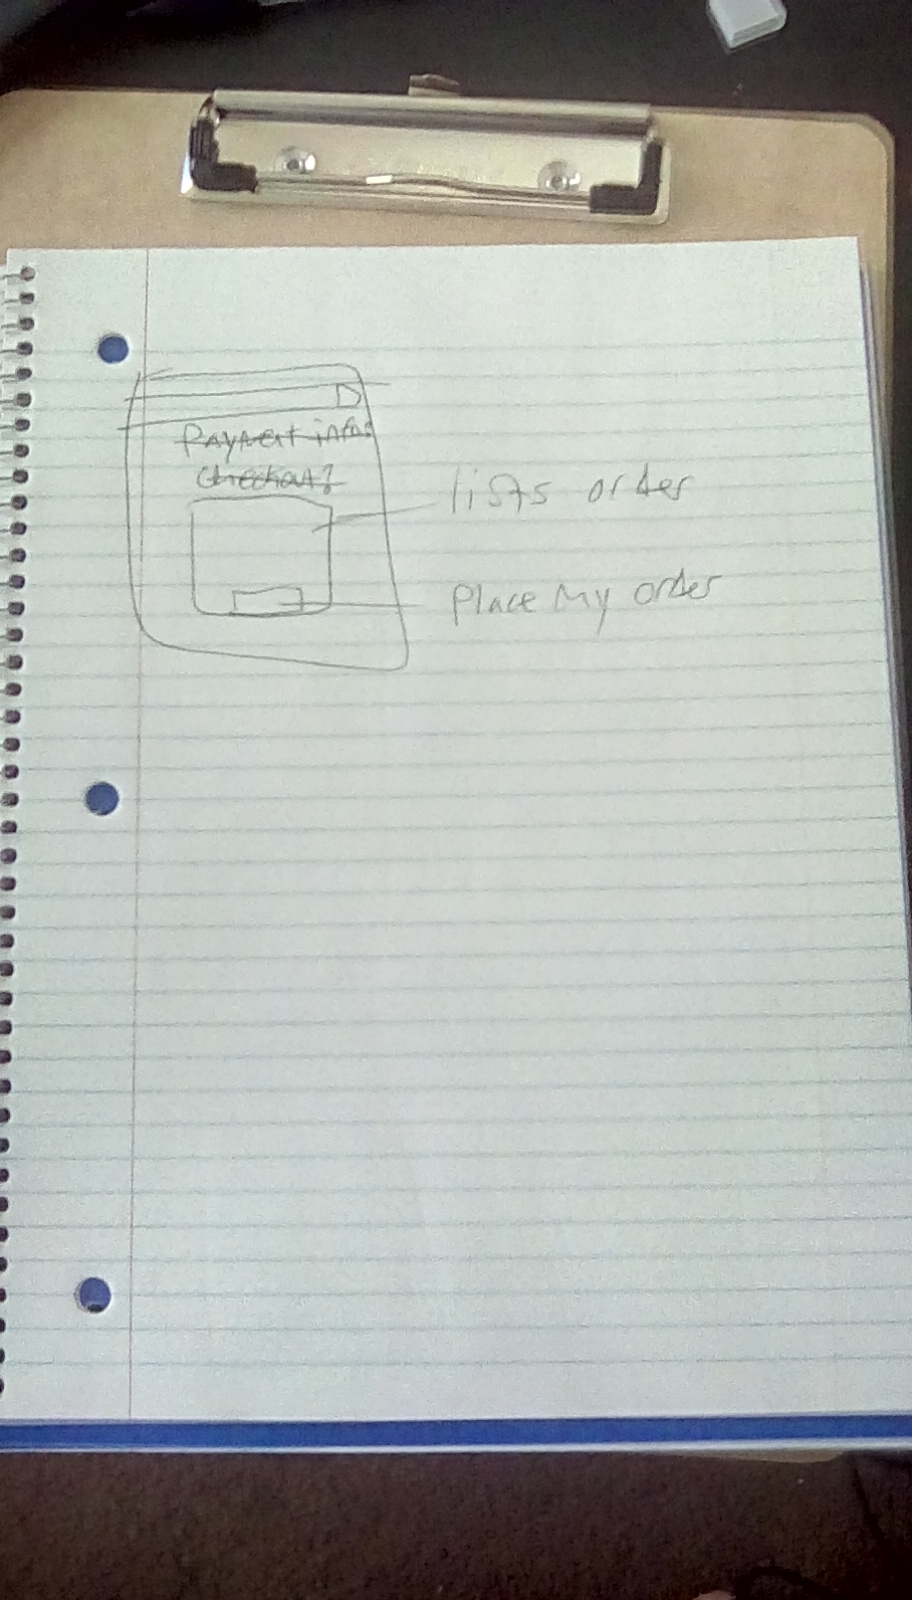 Payment info?
Checkout?
lists order
Place My order